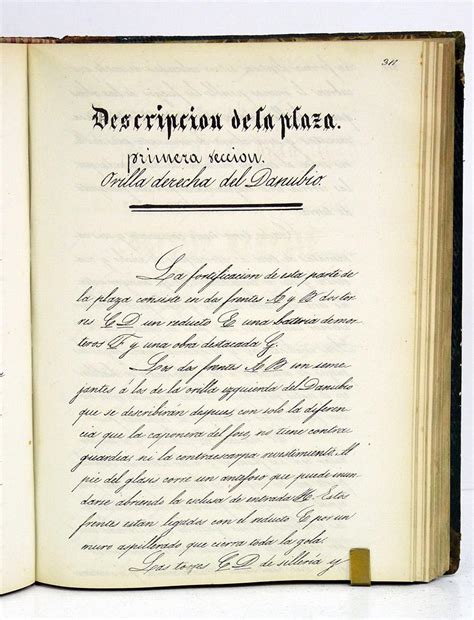 311
Descripcion de la plaza.
primera seccion.
Orilla derecha del Danubio.
La fortificacion de esta parte de
la plaza consiste en dos frentes A y B dos tor
res C D un reducto E una bateria de mor
teros F y una obra destacada G.
Los dos frentes A B son seme
jantes á las de la orilla izquierda del Danubio
que se describirán despues, con solo la diferen
cia que la caponera del foso, no tiene contra
guardia, ni la contraescarpa revestimiento. Al
pie del glasis corre un antefoso que puede inun
darse abriendo la esclusa de entrada H. Estos
frentes estan ligados con el reducto E por un
muro aspillerado que cierra toda la gola.
Las torres C D de silleria y